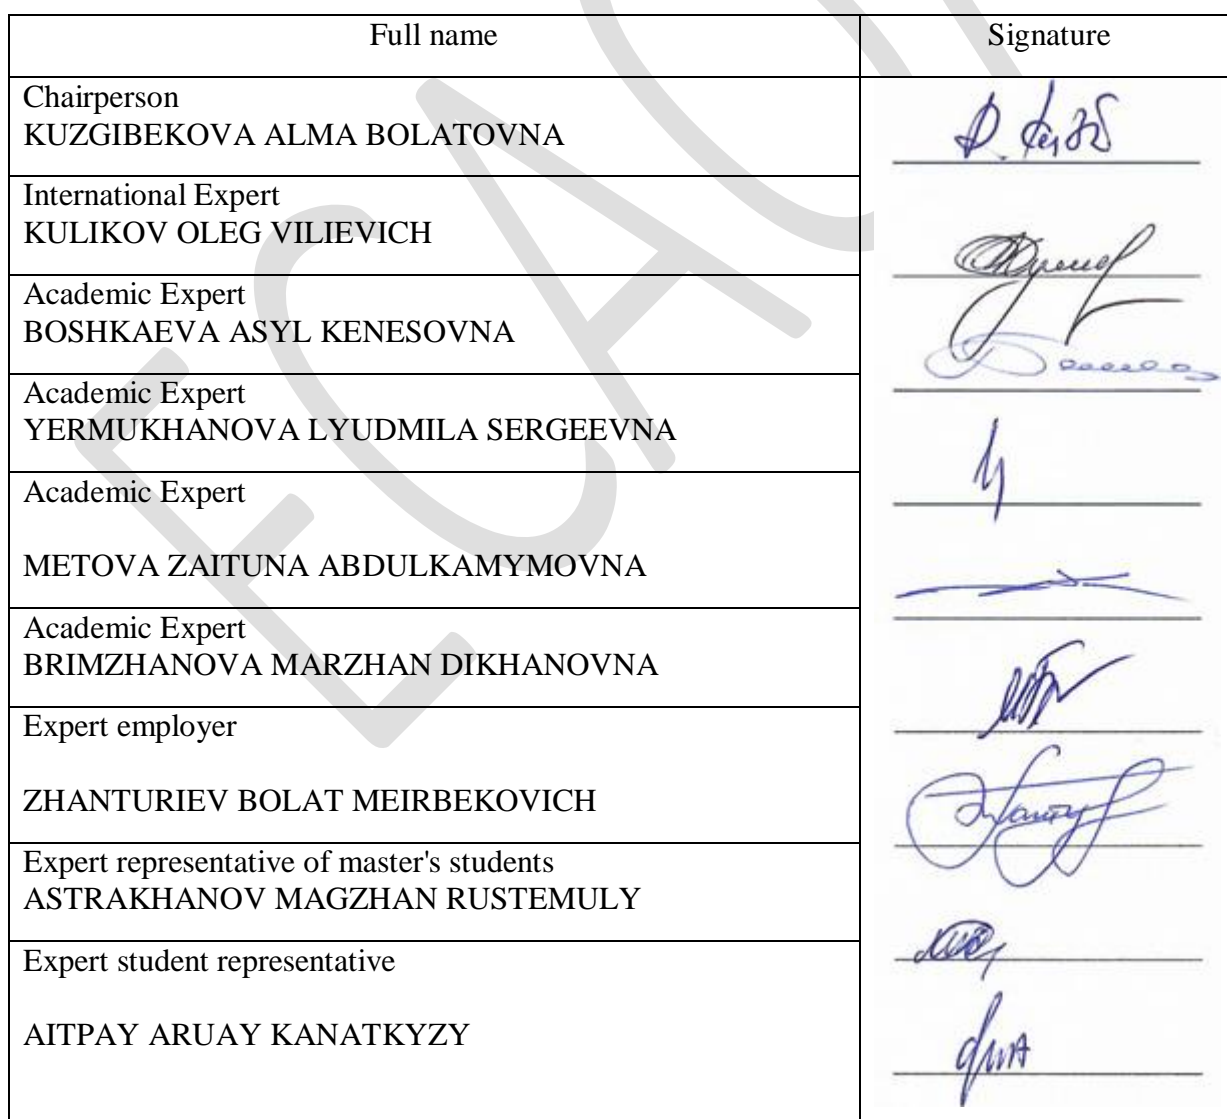 Full name
Signature
Chairperson
KUZGIBEKOVA ALMA BOLATOVNA
International Expert
KULIKOV OLEG VILIEVICH
Academic Expert
BOSHKAEVA ASYL KENESOVNA
Academic Expert
YERMUKHANOVA LYUDMILA SERGEEVNA
Academic Expert
METOVA ZAITUNA ABDULKAMYMOVNA
Academic Expert
BRIMZHANOVA MARZHAN DIKHANOVNA
Expert employer
ZHANTURIEV BOLAT MEIRBEKOVICH
Expert representative of master's students
ASTRAKHANOV MAGZHAN RUSTEMULY
Expert student representative
AITPAY ARUAY KANATKYZY